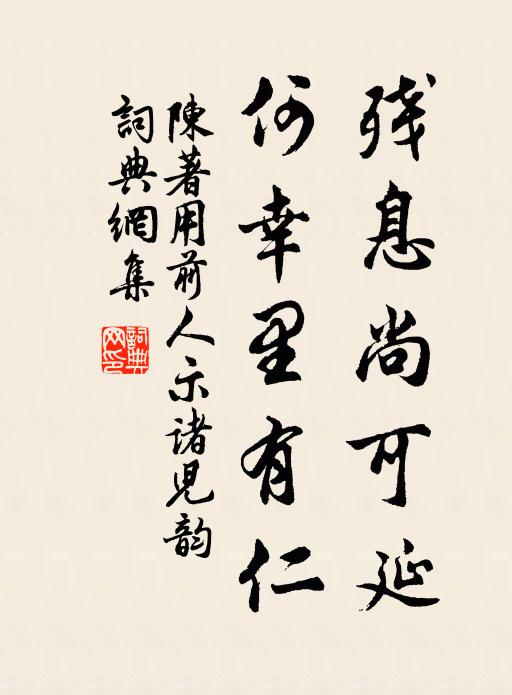 残息尚可延
何幸里有仁
陳著用前人示諸兒韵
詞典網集
詞典網印